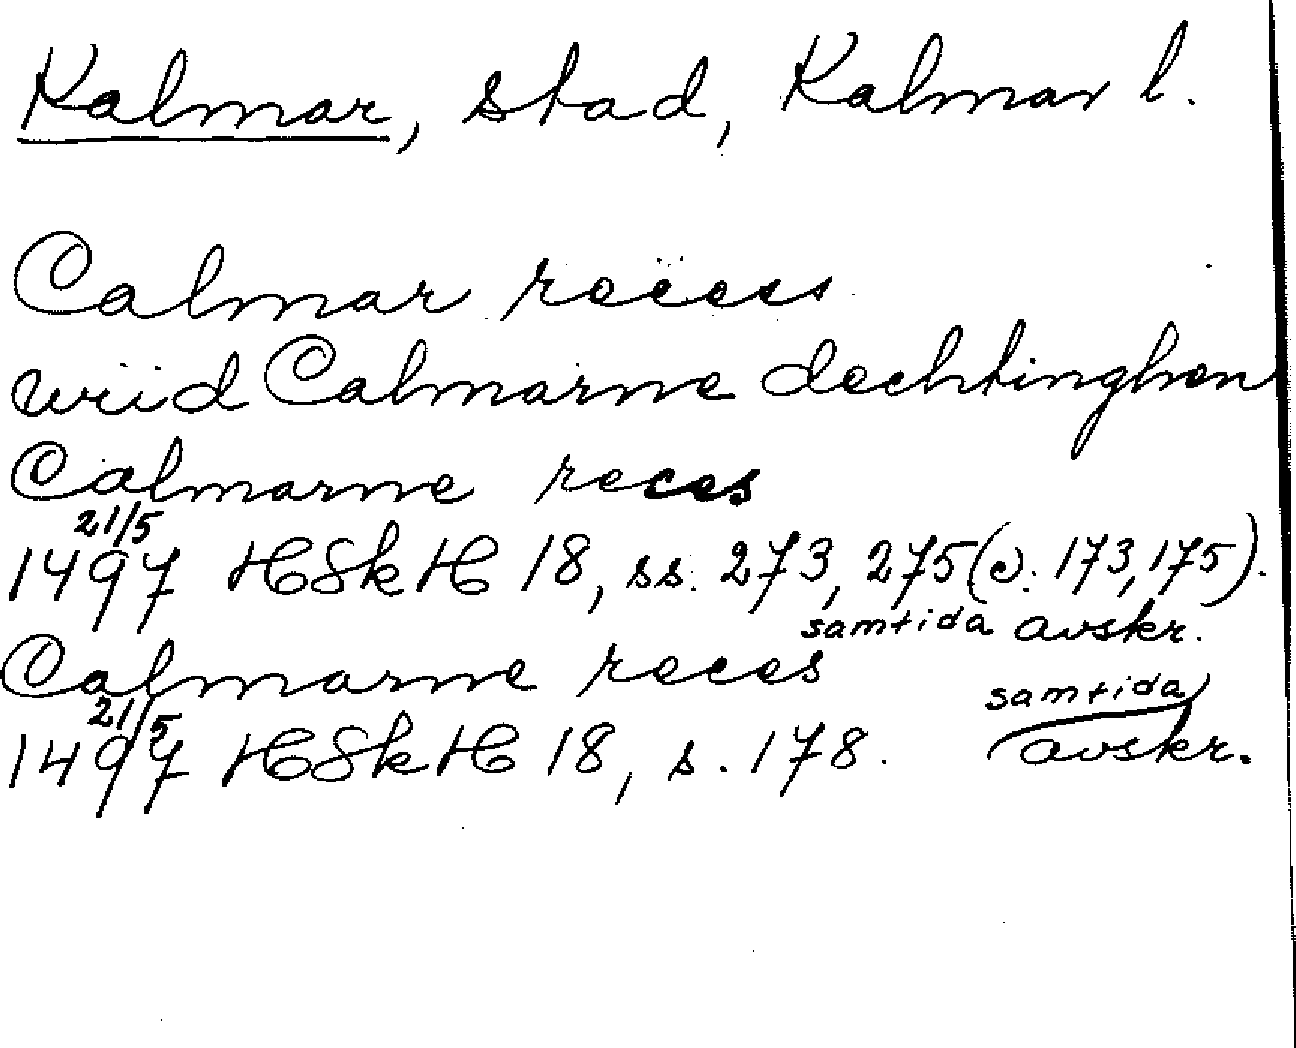 Kalmar, stad, Kalmar l.
Calmar recess
wiid Calmarne dechtinghen
Calmarne reces
21/5
1497 HSkH 18, ss. 273, 275 (o: 173, 175).
samtida avskr.
Calmarne reces
21/5
1497 HSkH 18, s. 178. samtida avskr.